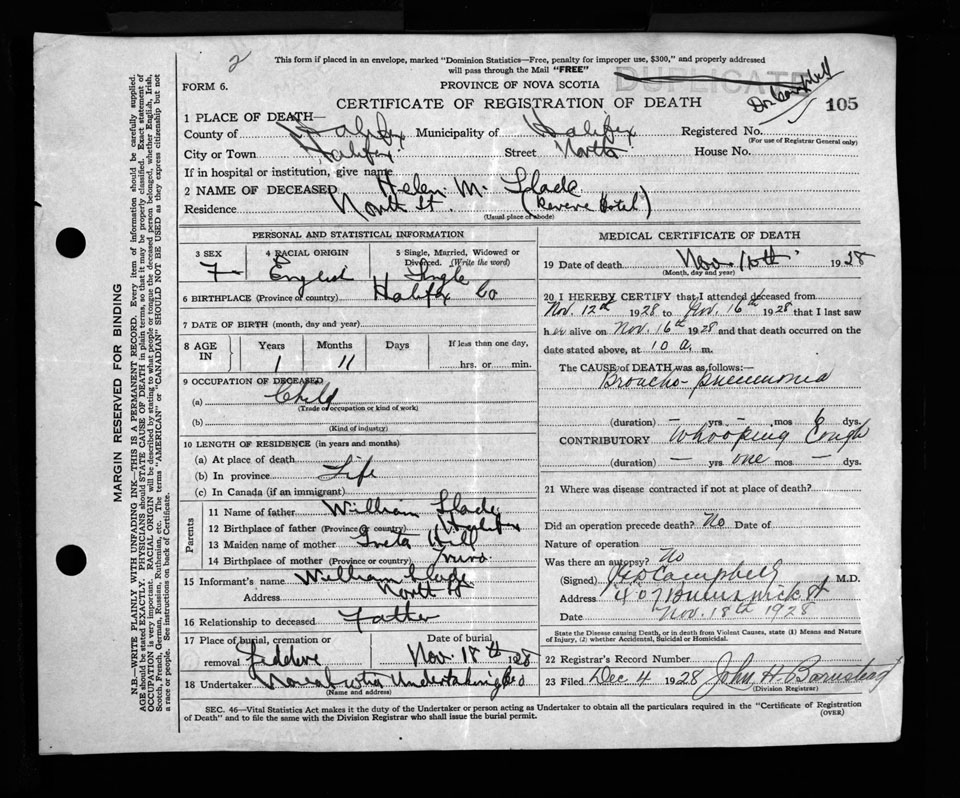 2
This form if placed in an envelope, marked "Dominion Statistics—Free, penalty for improper use, $300," and properly addressed
will pass through the Mail "FREE"
DUPLICATE
FORM 6.
PROVINCE OF NOVA SCOTIA
Dr. Campbell
CERTIFICATE OF REGISTRATION OF DEATH
105
1 PLACE OF DEATH—
County of Halifax Municipality of Halifax Registered No.
(For use of Registrar General only)
City or Town Halifax Street North House No.
If in hospital or institution, give name
2 NAME OF DECEASED Helen M. Slade
Residence North St. (Revere Hotel)
(Usual place of abode)
PERSONAL AND STATISTICAL INFORMATION
3 SEX 4 RACIAL ORIGIN 5 Single, Married, Widowed or
Divorced. (Write the word)
F English Single
6 BIRTHPLACE (Province or country) Halifax Co
7 DATE OF BIRTH (month, day and year)
8 AGE IN Years Months Days If less than one day,
1 11 hrs. or min.
9 OCCUPATION OF DECEASED
(a) Child
(Trade or occupation or kind of work)
(b)
(Kind of industry)
10 LENGTH OF RESIDENCE (in years and months)
(a) At place of death
(b) In province Life
(c) In Canada (if an immigrant)
Parents
11 Name of father William Slade
12 Birthplace of father (Province or country) Halifax
13 Maiden name of mother Greta Hill
14 Birthplace of mother (Province or country) Truro
15 Informant's name William Slade
Address North St
16 Relationship to deceased Father
17 Place of burial, cremation or Date of burial
removal Nov. 18th 1928
18 Undertaker Nova Scotia Undertaking Co
(Name and address)
MEDICAL CERTIFICATE OF DEATH
19 Date of death Nov. 16th 1928
(Month, day and year)
20 I HEREBY CERTIFY that I attended deceased from
Nov. 12th 1928 to Nov. 16th 1928 that I last saw
her alive on Nov. 16th 1928 and that death occurred on the
date stated above, at 10 a. m.
The CAUSE of DEATH was as follows:—
Broncho-pneumonia
(duration) — yrs. — mos 6 dys.
CONTRIBUTORY Whooping Cough
(duration) — yrs one mos — dys.
21 Where was disease contracted if not at place of death?
Did an operation precede death? No Date of
Nature of operation
Was there an autopsy? No
(Signed) Campbell M.D.
Address 407 Brunswick St
Date Nov. 18th 1928
State the Disease causing Death, or in death from Violent Causes, state (1) Means and Nature
of Injury, (2) whether Accidental, Suicidal or Homicidal.
22 Registrar's Record Number
23 Filed Dec 4 1928 John H. Barnstead
(Division Registrar)
SEC. 46—Vital Statistics Act makes it the duty of the Undertaker or person acting as Undertaker to obtain all the particulars required in the "Certificate of Registration
of Death" and to file the same with the Division Registrar who shall issue the burial permit. (OVER)
MARGIN RESERVED FOR BINDING
N.B.—WRITE PLAINLY WITH UNFADING INK—THIS IS A PERMANENT RECORD. Every item of information should be carefully supplied.
AGE should be stated EXACTLY. PHYSICIANS should STATE CAUSE OF DEATH in plain terms, so that it may be properly classified. Exact statement of
OCCUPATION is very important. RACIAL ORIGIN will be described by stating to what people or tongue the deceased person belonged, whether English, Irish,
Scotch, French, German, Russian, Ruthenian, etc. The terms "AMERICAN" or "CANADIAN" SHOULD NOT BE USED as they express citizenship but not
a race or people. See instructions on back of Certificate.